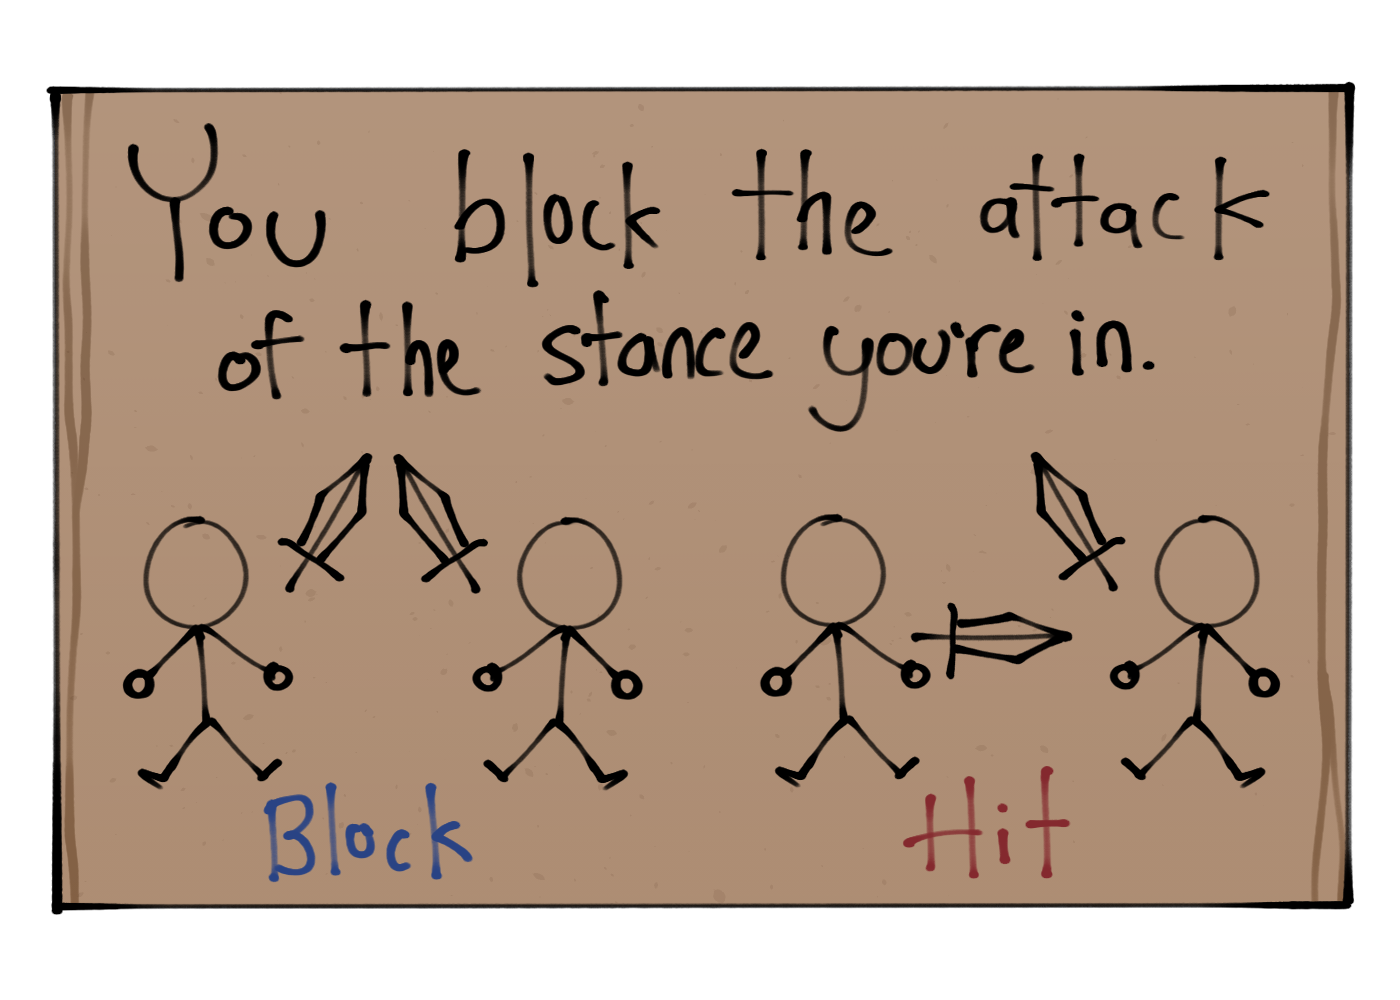 You block the attack
of the stance you're in.
Block
Hit